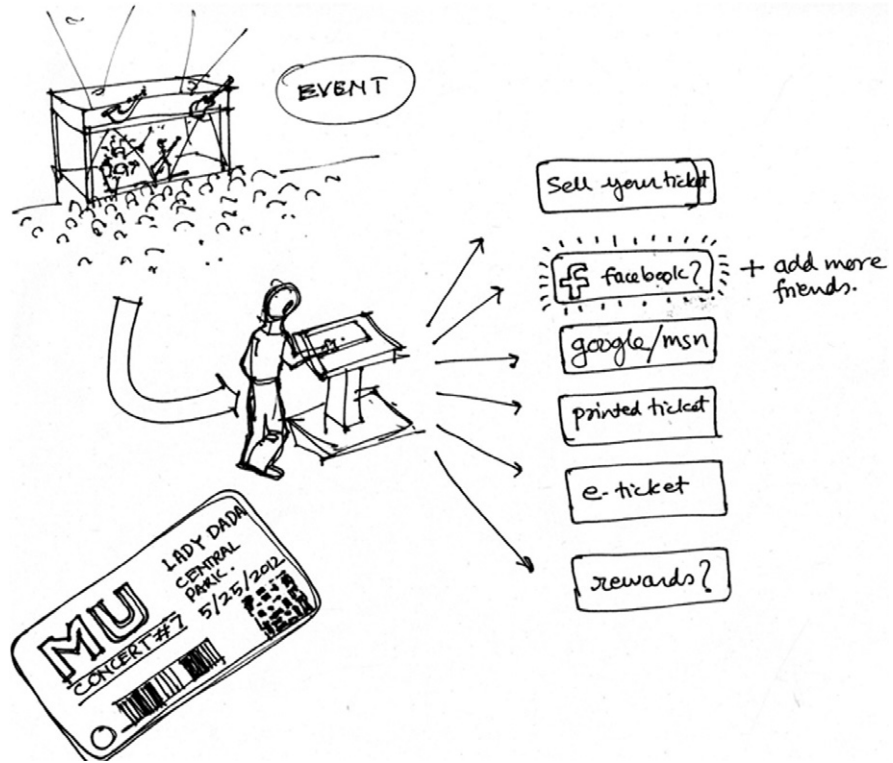 EVENT
Sell your ticket
f facebook?
+ add more
friends.
google/msn
printed ticket
e-ticket
rewards?
MU
CONCERT #7
LADY DADA
CENTRAL
PARK.
5/25/2012